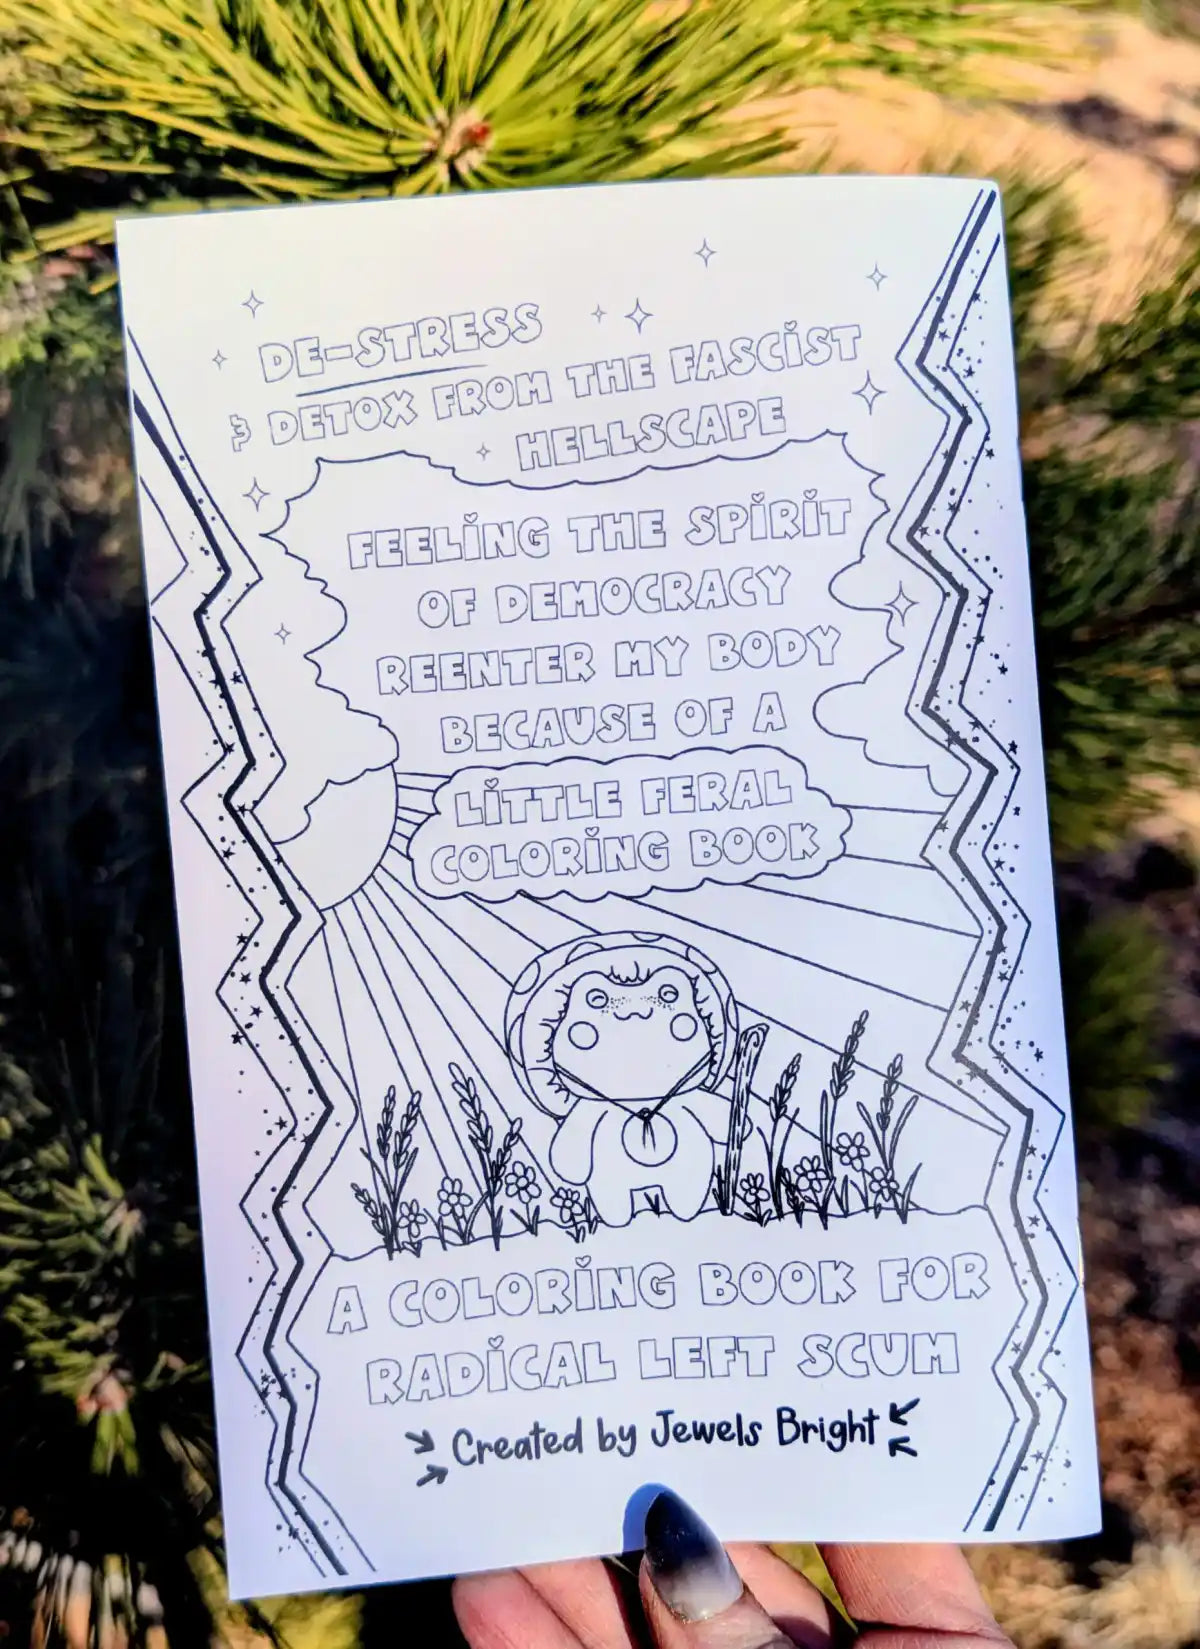 DE-STRESS
& DETOX FROM THE FASCIST
HELLSCAPE
FEELING THE SPIRIT
OF DEMOCRACY
REENTER MY BODY
BECAUSE OF A
LITTLE FERAL
COLORING BOOK
A COLORING BOOK FOR
RADICAL LEFT SCUM
Created by Jewels Bright